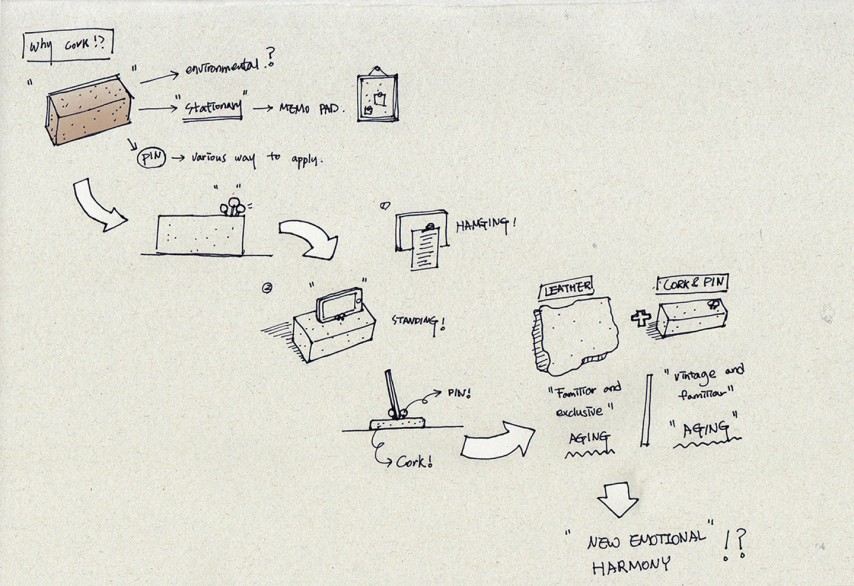 Why Cork!?
environmental.?
"Stationary" → MEMO PAD.
PIN → various way to apply.
①
HANGING!
②
STANDING!
PIN!
Cork!
LEATHER
CORK & PIN
"Familiar and
exclusive"
AGING
"vintage and
familiar"
"AGING"
"NEW EMOTIONAL" !?
HARMONY